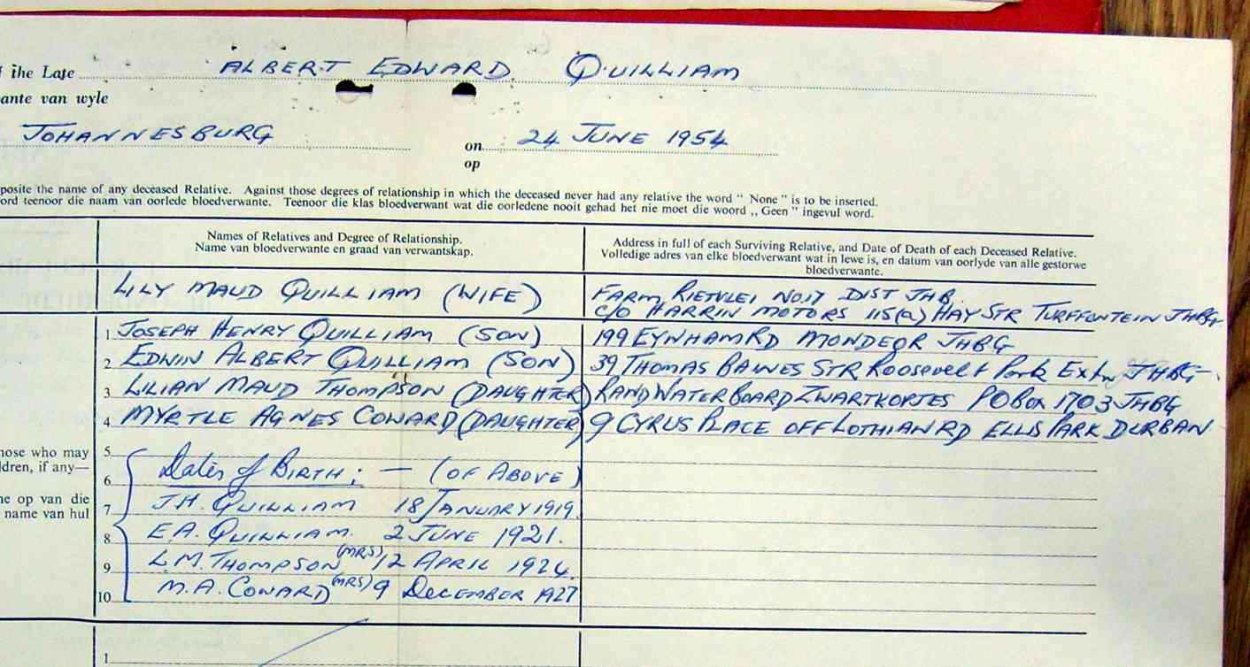 the Late ALBERT EDWARD QUILLIAM
ante van wyle
JOHANNESBURG on 24 JUNE 1954
op
posite the name of any deceased Relative. Against those degrees of relationship in which the deceased never had any relative the word " None " is to be inserted.
ord teenoor die naam van oorlede bloedverwante. Teenoor die klas bloedverwant wat die oorledene nooit gehad het nie moet die woord ,, Geen " ingevul word.
Names of Relatives and Degree of Relationship.
Name van bloedverwante en graad van verwantskap.
Address in full of each Surviving Relative, and Date of Death of each Deceased Relative.
Volledige adres van elke bloedverwant wat in lewe is, en datum van oorlyde van alle gestorwe
bloedverwante.
LILY MAUD QUILLIAM (WIFE)
FARM RIETVLEI NO 17 DIST JHB.
C/O HARRIN MOTORS 115(a) HAY STR TURFFONTEIN JHBG
1 JOSEPH HENRY QUILLIAM (SON) 199 EYNHAM RD MONDEOR JHBG
2 EDWIN ALBERT QUILLIAM (SON) 39 THOMAS BAINES STR Roosevelt Park Extn JHBG
3 LILIAN MAUD THOMPSON (DAUGHTER) RAND WATER BOARD ZWARTKOPJES PO Box 1703 JHBG
4 MYRTLE AGNES COWARD (DAUGHTER) 9 CYRUS PLACE OFF LOTHIAN RD ELLIS PARK DURBAN
hose who may
ldren, if any—
ne op van die
name van hul
5
6 Dates of BIRTH : — (OF ABOVE)
7 J.H. QUILLIAM 18 JANUARY 1919.
8 E.A. QUILLIAM. 2 JUNE 1921.
9 L.M. THOMPSON (MRS) 12 APRIL 1924.
10 M.A. COWARD (MRS) 9 DECEMBER 1927
1